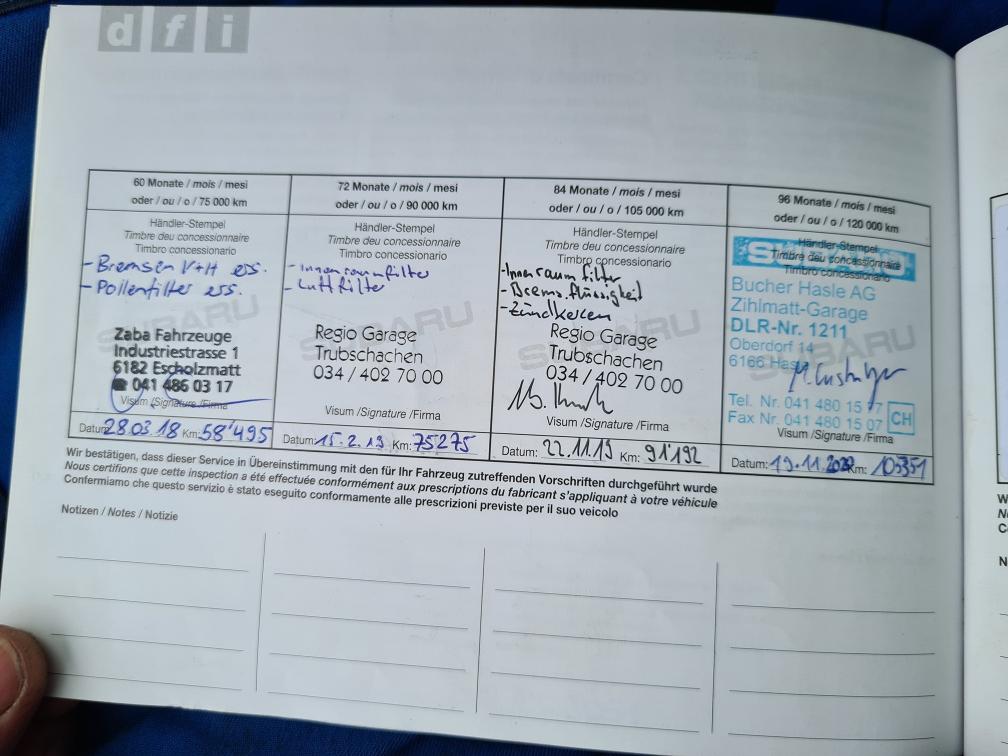 d f i
60 Monate / mois / mesi
oder / ou / o / 75 000 km
Händler-Stempel
Timbre du concessionnaire
Timbro concessionario
- Bremsen V+H ers.
- Pollenfilter ers.
SUBARU
Zaba Fahrzeuge
Industriestrasse 1
6182 Escholzmatt
☎ 041 486 03 17
Visum /Signature /Firma
Datum: 28.03.18 Km: 58'495
72 Monate / mois / mesi
oder / ou / o / 90 000 km
Händler-Stempel
Timbre du concessionnaire
Timbro concessionario
- Innenraumfilter
- Luftfilter
SUBARU
Regio Garage
Trubschachen
034 / 402 70 00
Visum /Signature /Firma
Datum: 15.2.19 Km: 75275
84 Monate / mois / mesi
oder / ou / o / 105 000 km
Händler-Stempel
Timbre du concessionnaire
Timbro concessionario
- Innenraumfilter
- Bremsflüssigkeit
- Zündkerzen
SUBARU
Regio Garage
Trubschachen
034 / 402 70 00
Visum /Signature /Firma
Datum: 22.11.19 Km: 91'192
96 Monate / mois / mesi
oder / ou / o / 120 000 km
SUBARU
Händler-Stempel
Timbre du concessionnaire
Timbro concessionario
Bucher Hasle AG
Zihlmatt-Garage
DLR-Nr. 1211
Oberdorf 14
6166 Hasle
SUBARU
Tel. Nr. 041 480 15 77
Fax Nr. 041 480 15 07
CH
Visum /Signature /Firma
Datum: 19.11. Km:
Wir bestätigen, dass dieser Service in Übereinstimmung mit den für Ihr Fahrzeug zutreffenden Vorschriften durchgeführt wurde
Nous certifions que cette inspection a été effectuée conformément aux prescriptions du fabricant s'appliquant à votre véhicule
Confermiamo che questo servizio è stato eseguito conformamente alle prescrizioni previste per il suo veicolo
Notizen / Notes / Notizie